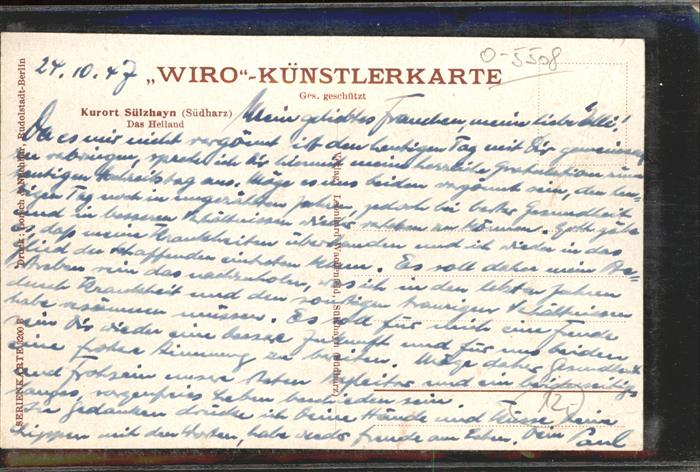 24.10.47
0-5508
„WIRO“-KÜNSTLERKARTE
Ges. geschützt
Kurort Sülzhayn (Südharz)
Das Heiland
Mein geliebtes Frauchen, mein liebe Elli!
Da es mir nicht vergönnt ist den heutigen Tag mit Dir gemeinsam
zu verbringen, spreche ich Dir hiermit meine herzliche Gratulation zum
heutigen Hochzeitstag aus. Möge es uns beiden vergönnt sein, den heu-
tigen Tag noch in ungezählten Jahren, jedoch bei bester Gesundheit
und in besseren Verhältnissen wieder erleben zu können. Gott gebe
es, daß meine Krankheiten überwunden und ich wieder in das
der Schaffenden einkehren kann. Es soll daher mein Be-
streben sein das nachzuholen, was ich in den letzten Jahren
durch Krankheit und den sonstigen traurigen Verhältnissen
habe versäumen müssen. Es soll für mich eine Freude
sein Dir wieder eine bessere Zukunft und für uns beiden
eine frohe Stimmung zu bereiten. Möge daher Gesundheit
und Frohsein unser steter Begleiter und ein beiderseitiges
langes, sorgenfreies Leben beschieden sein
In Gedanken drücke ich Deine Hände und küsse Dein
mit den Worten, habe wieder Freude am Leben. Dein Paul
(12.-)
SERIENKARTE 1200 B
Druck: Rudolstadt-Berlin
Verlag: Sülzhayn (Südharz)